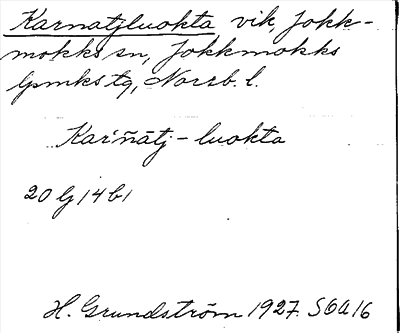 Karnatjluokta vik, Jokk-
mokks sn, Jokkmokks
lpmks tg, Norrb. l.
Kar'ñātj-luokta
20 G 14 b 1
H. Grundström 1927. S6a16